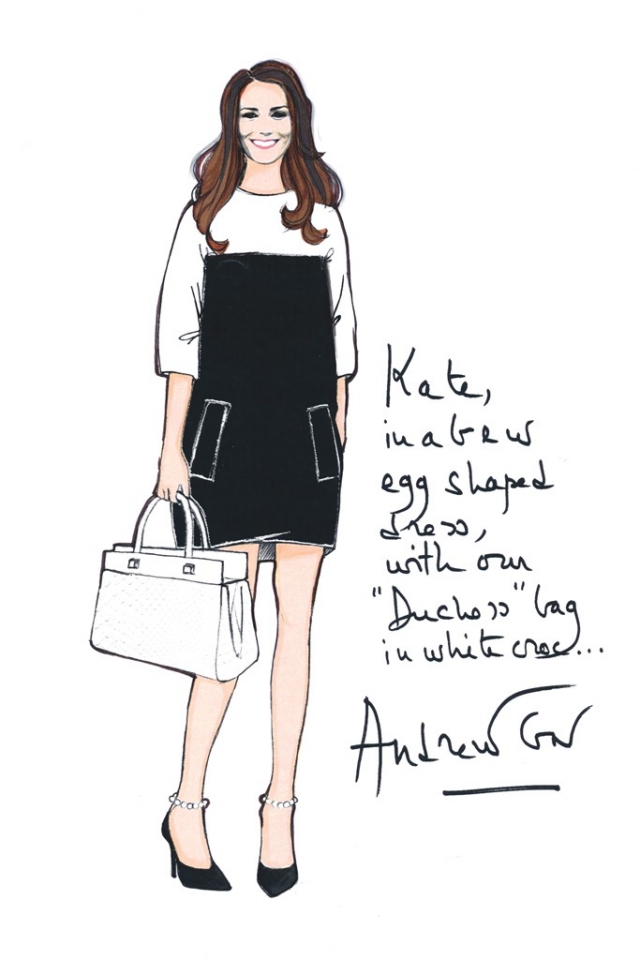 Kate,
in a new
egg shaped
dress,
with our
"Duchess" bag
in white croc...
Andrew GN